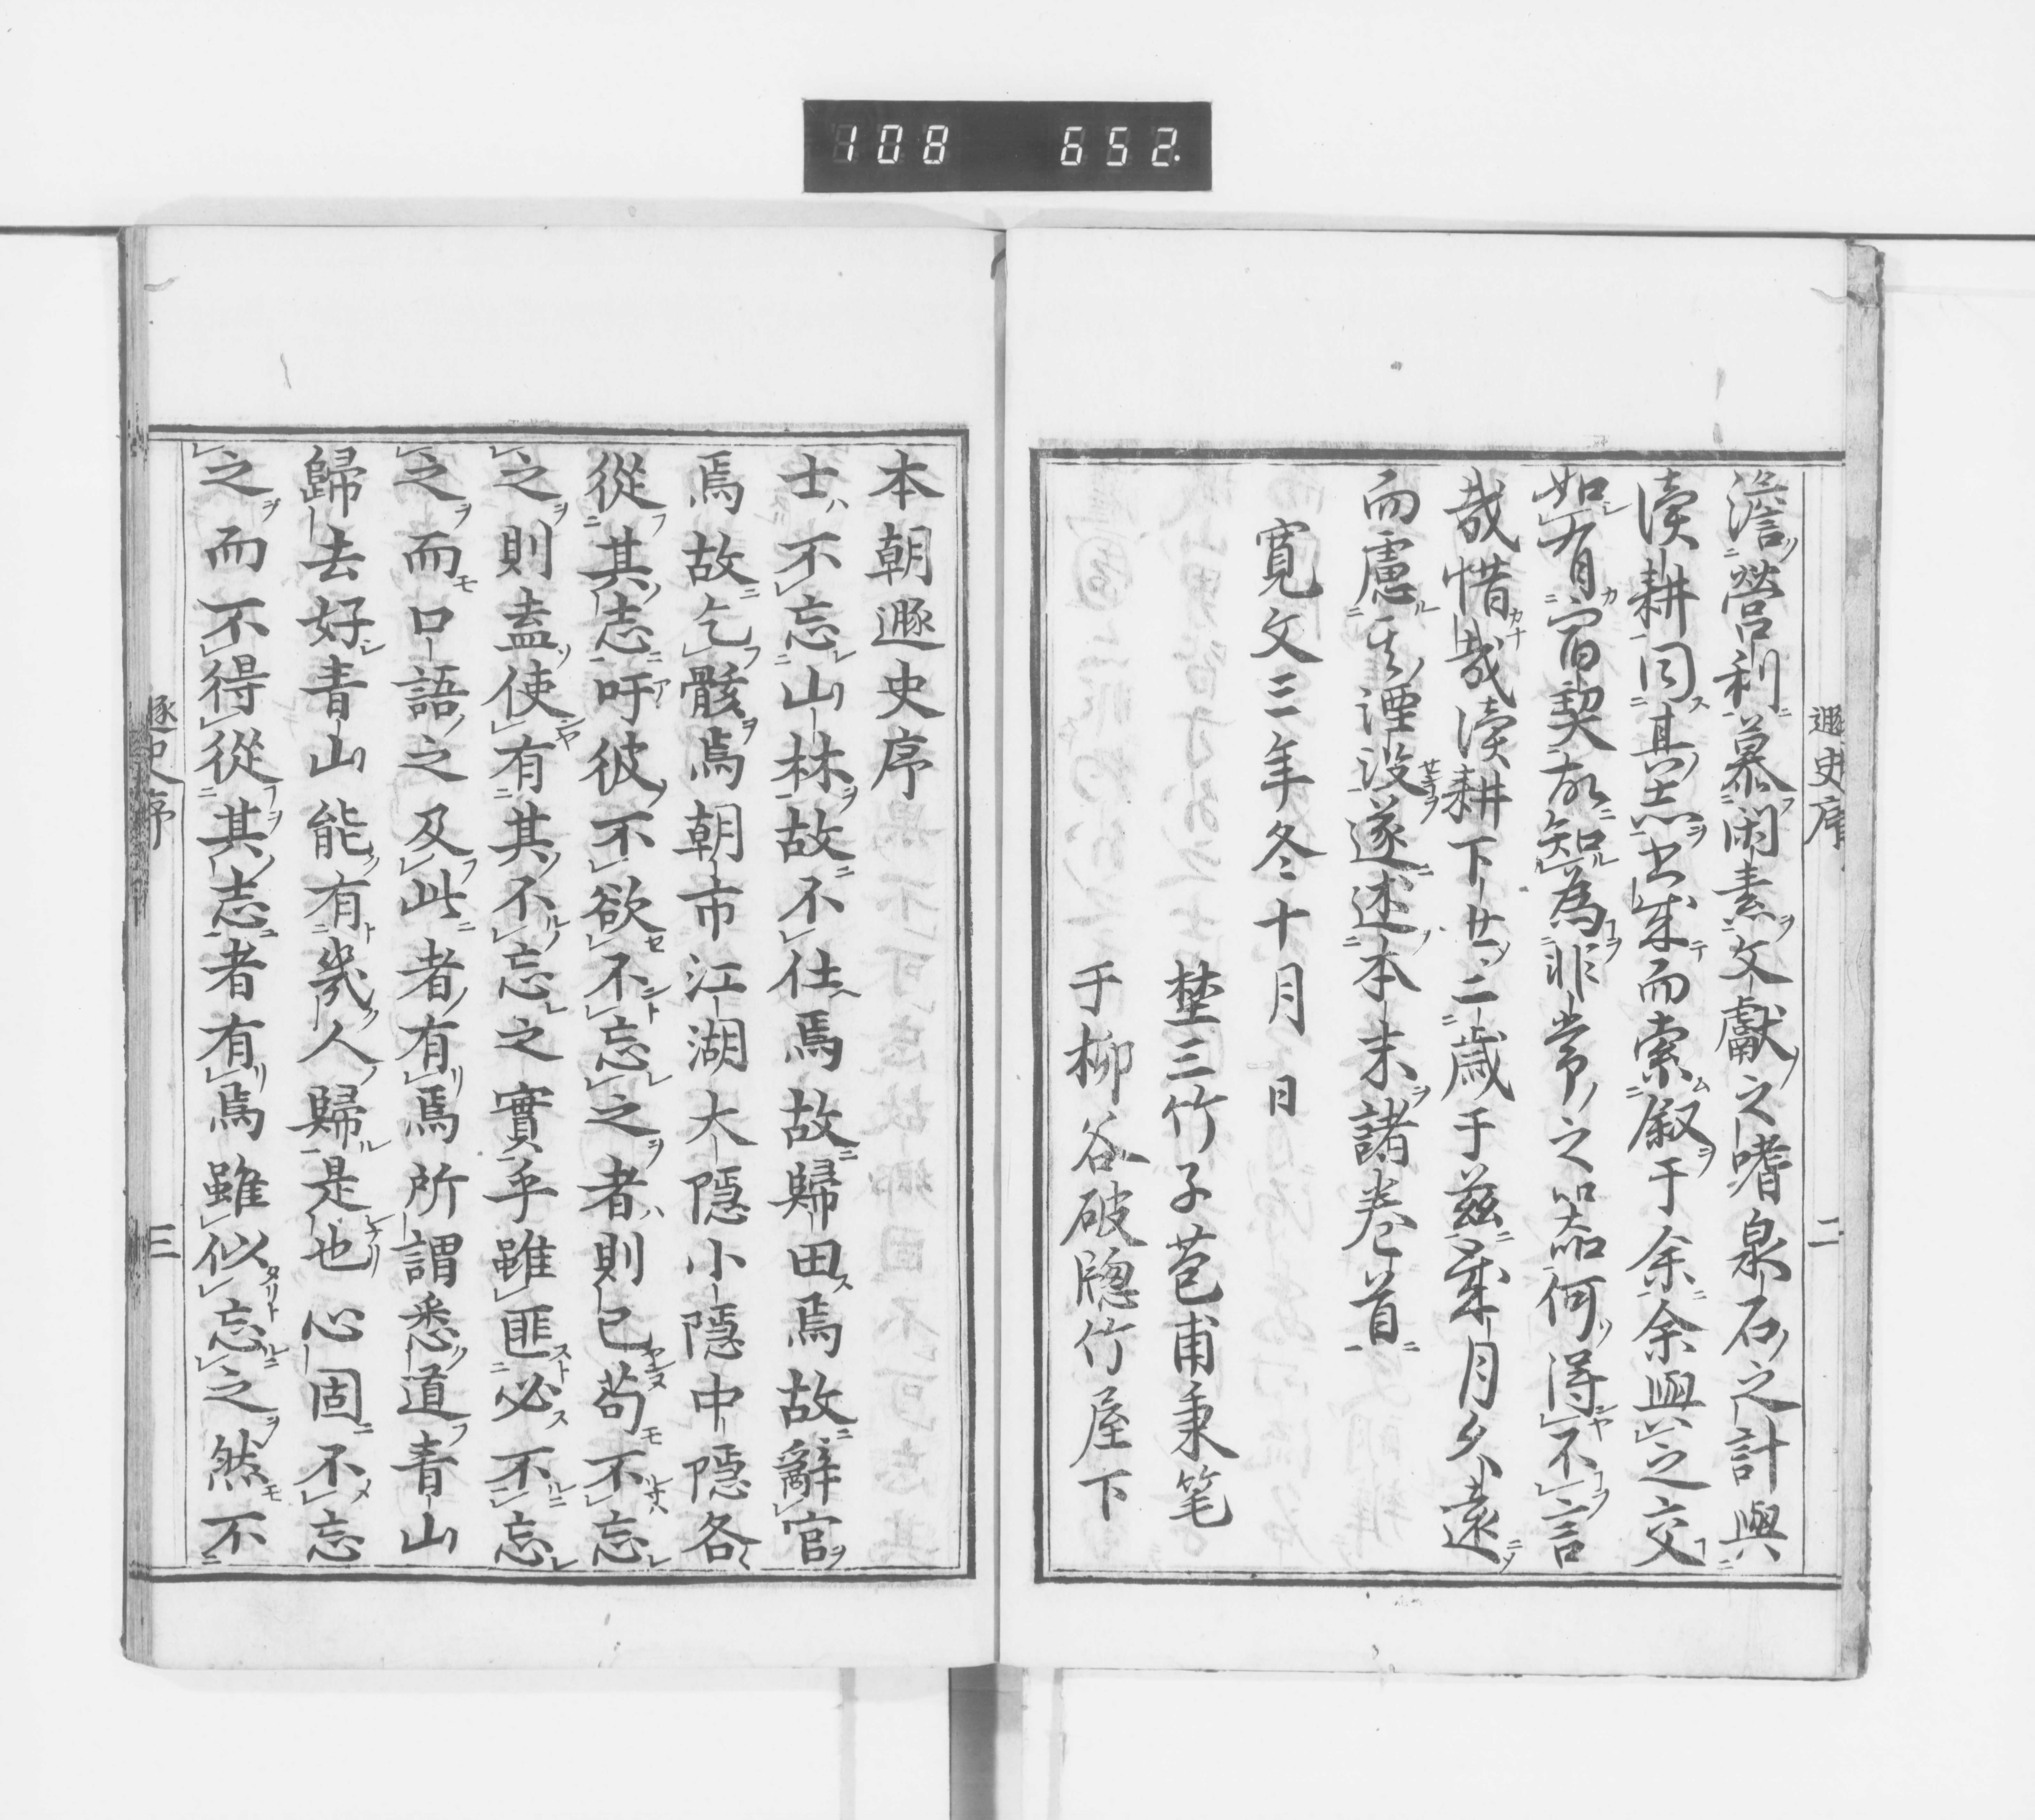 108 652.
遯史序 二
澹營利慕閑素文獻之嗜泉石之計與
讀耕同其志書成而索叙于余余與之交
如有宿契故知為非常之器何得不言
哉惜哉讀耕下世二歳于茲歳月久遠
而慮其湮没遂述本末諸巻首
寛文三年冬十月日
埜三竹子苞甫秉笔
于柳谷破牎竹屋下
本朝遯史序
士不忘山林故不仕焉故歸田焉故辭官
焉故乞骸焉朝市江湖大隠小隠中隠各
從其志吁彼不欲不忘之者則已苟不忘
之則盍使有其不忘之實乎雖匪必不忘
之而口語之及此者有焉所謂悉道青山
歸去好青山能有幾人歸是也心固不忘
之而不得從其志者有焉雖似忘之然不
遯史序 三